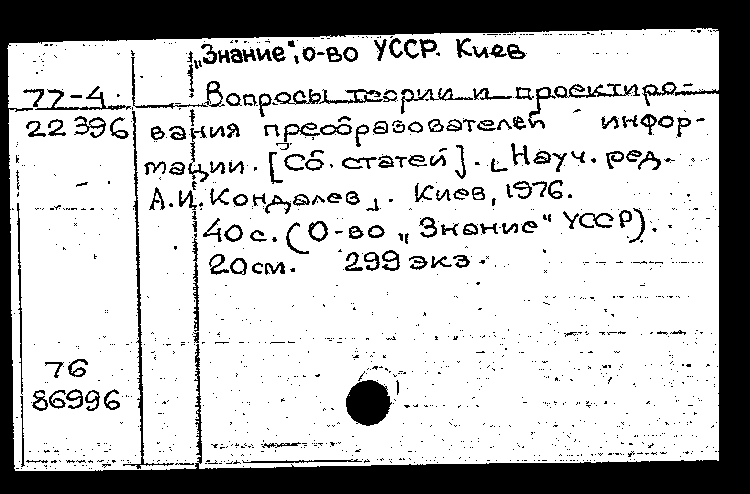 „Знание“, о-во УССР. Киев
77-4 Вопросы теории и проектиро-
22396 вания преобразователей инфор-
мации. [Сб. статей]. [Науч. ред.
А.И. Кондалев]. Киев, 1976.
40 с. (О-во „Знание“ УССР).
20 см. 299 экз.
76
86996